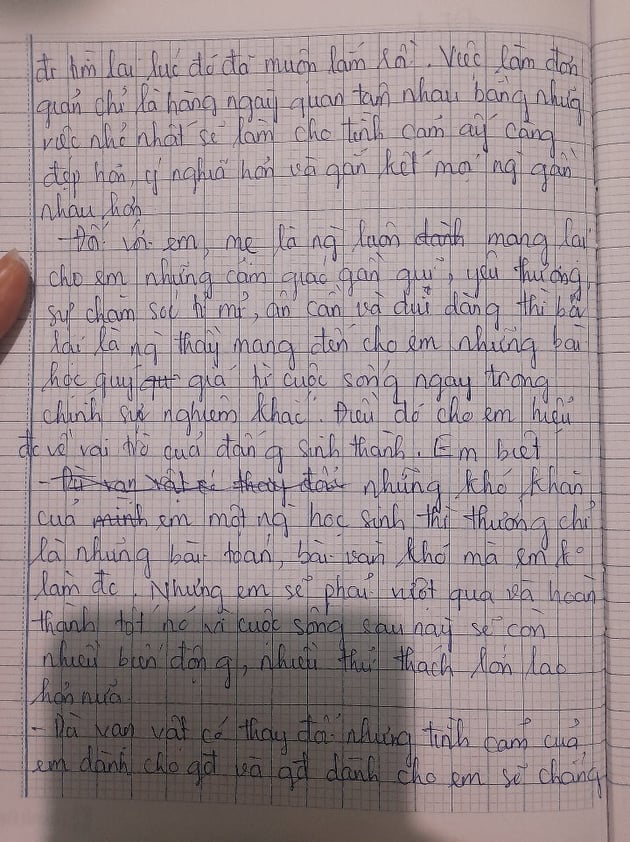 đi tìm lại lúc đó đã muộn lắm rồi. Việc làm đơn
giản chỉ là hằng ngày quan tâm nhau bằng những
việc nhỏ nhất sẽ làm cho tình cảm ấy càng
đẹp hơn, ý nghĩa hơn và gắn kết mọi ng gần
nhau hơn
- Đối với em, mẹ là ng luôn dành mang lại
cho em những cảm giác gần gũi, yêu thương,
sự chăm sóc tỉ mỉ, ân cần và dịu dàng thì bố
lại là ng thầy mang đến cho em những bài
học quý giá từ cuộc sống ngay trong
chính sự nghiêm khắc. Điều đó cho em hiểu
đc về vai trò quá đấng sinh thành. Em biết
- Dù vạn vật có thay đổi những khó khăn
của mình em một ng học sinh thì thường chỉ
là những bài toán, bài văn khó mà em ko
làm đc. Nhưng em sẽ phải vượt qua và hoàn
thành tốt nó vì cuộc sống sau này sẽ còn
nhiều biến động, nhiều thử thách lớn lao
hơn nữa.
- Dù vạn vật có thay đổi nhưng tình cảm của
em dành cho gđ và gđ dành cho em sẽ chẳng